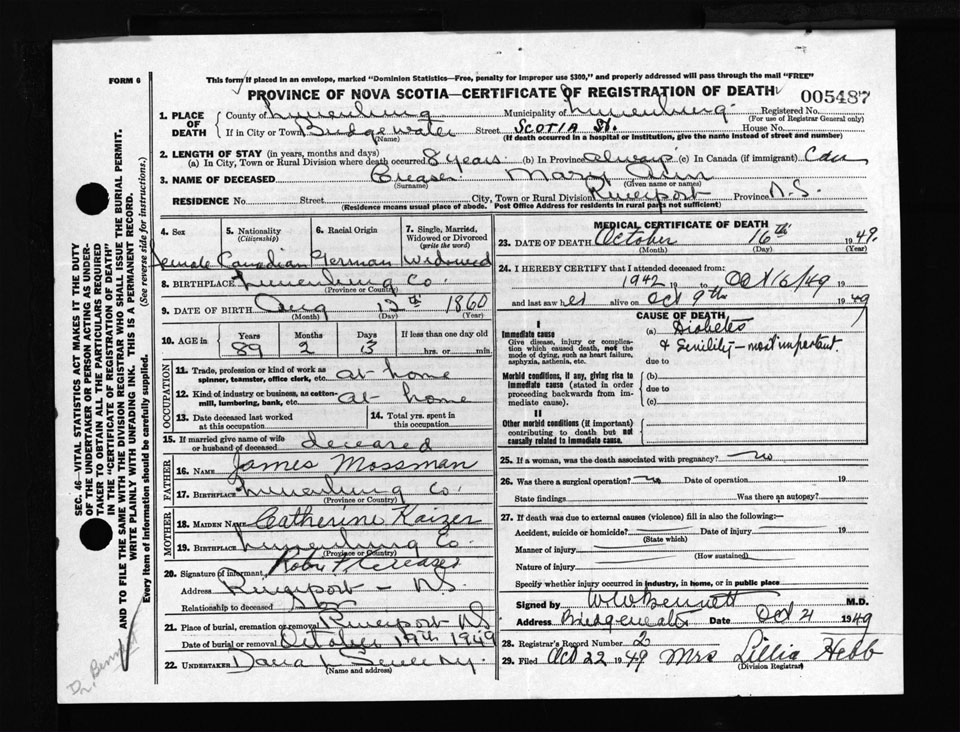 FORM 6
This form if placed in an envelope, marked "Dominion Statistics—Free, penalty for improper use $300," and properly addressed will pass through the mail "FREE"
PROVINCE OF NOVA SCOTIA—CERTIFICATE OF REGISTRATION OF DEATH
005487
1. PLACE OF DEATH
County of Lunenburg Municipality of Lunenburg Registered No.
(For use of Registrar General only)
If in City or Town Bridgewater Street Scotia St. House No.
(Name) (If death occurred in a hospital or institution, give the name instead of street and number)
2. LENGTH OF STAY (in years, months and days)
(a) In City, Town or Rural Division where death occurred 8 years (b) In Province always (c) In Canada (if immigrant) Can
3. NAME OF DECEASED Creaser Mary Ann
(Surname) (Given name or names)
RESIDENCE No. Street City, Town or Rural Division Riverport Province N.S.
(Residence means usual place of abode. Post Office Address for residents in rural parts not sufficient)
4. Sex 5. Nationality (Citizenship) 6. Racial Origin 7. Single, Married, Widowed or Divorced (write the word)
Female Canadian German Widowed
8. BIRTHPLACE Lunenburg Co.
(Province or Country)
9. DATE OF BIRTH Aug 13th 1860
(Month) (Day) (Year)
10. AGE in Years Months Days If less than one day old
89 2 3 hrs. or min.
OCCUPATION
11. Trade, profession or kind of work as spinner, teamster, office clerk, etc. at home
12. Kind of industry or business, as cotton-mill, lumbering, bank, etc. at home
13. Date deceased last worked at this occupation 14. Total yrs. spent in this occupation
15. If married give name of wife or husband of deceased deceased
FATHER
16. NAME James Mossman
17. BIRTHPLACE Lunenburg Co.
(Province or Country)
MOTHER
18. MAIDEN NAME Catherine Kaizer
19. BIRTHPLACE Lunenburg Co.
(Province or Country)
20. Signature of informant Creaser
Address Riverport - N.S.
Relationship to deceased Son
21. Place of burial, cremation or removal Riverport NS
Date of burial or removal October 19th 1949
22. UNDERTAKER Dana L
(Name and address)
MEDICAL CERTIFICATE OF DEATH
23. DATE OF DEATH October 16th 1949.
(Month) (Day) (Year)
24. I HEREBY CERTIFY that I attended deceased from:
1942 19 to Oct 16/49 19
and last saw her alive on Oct 9th 1949
CAUSE OF DEATH
I
Immediate cause
Give disease, injury or complication which caused death, not the mode of dying, such as heart failure, asphyxia, asthenia, etc.
(a) Diabetes
& Senility - most important
due to
Morbid conditions, if any, giving rise to immediate cause (stated in order proceeding backwards from immediate cause).
(b)
due to
(c)
II
Other morbid conditions (if important) contributing to death but not causally related to immediate cause.
25. If a woman, was the death associated with pregnancy? no
26. Was there a surgical operation? no Date of operation 19
State findings Was there an autopsy?
27. If death was due to external causes (violence) fill in also the following:—
Accident, suicide or homicide? Date of injury 19
(State which)
Manner of injury
(How sustained)
Nature of injury
Specify whether injury occurred in industry, in home, or in public place
Signed by W W Bennett M.D.
Address Bridgewater Date Oct 21 1949
28. Registrar's Record Number 2
29. Filed Oct 22 1949 Mrs Lillia Hebb
(Division Registrar)
SEC. 46—VITAL STATISTICS ACT MAKES IT THE DUTY
OF THE UNDERTAKER OR PERSON ACTING AS UNDER-
TAKER TO OBTAIN ALL THE PARTICULARS REQUIRED
IN THE "CERTIFICATE OF REGISTRATION OF DEATH"
AND TO FILE THE SAME WITH THE DIVISION REGISTRAR WHO SHALL ISSUE THE BURIAL PERMIT.
WRITE PLAINLY WITH UNFADING INK. THIS IS A PERMANENT RECORD.
Every item of information should be carefully supplied. (See reverse side for instructions.)
Dr. Bennett